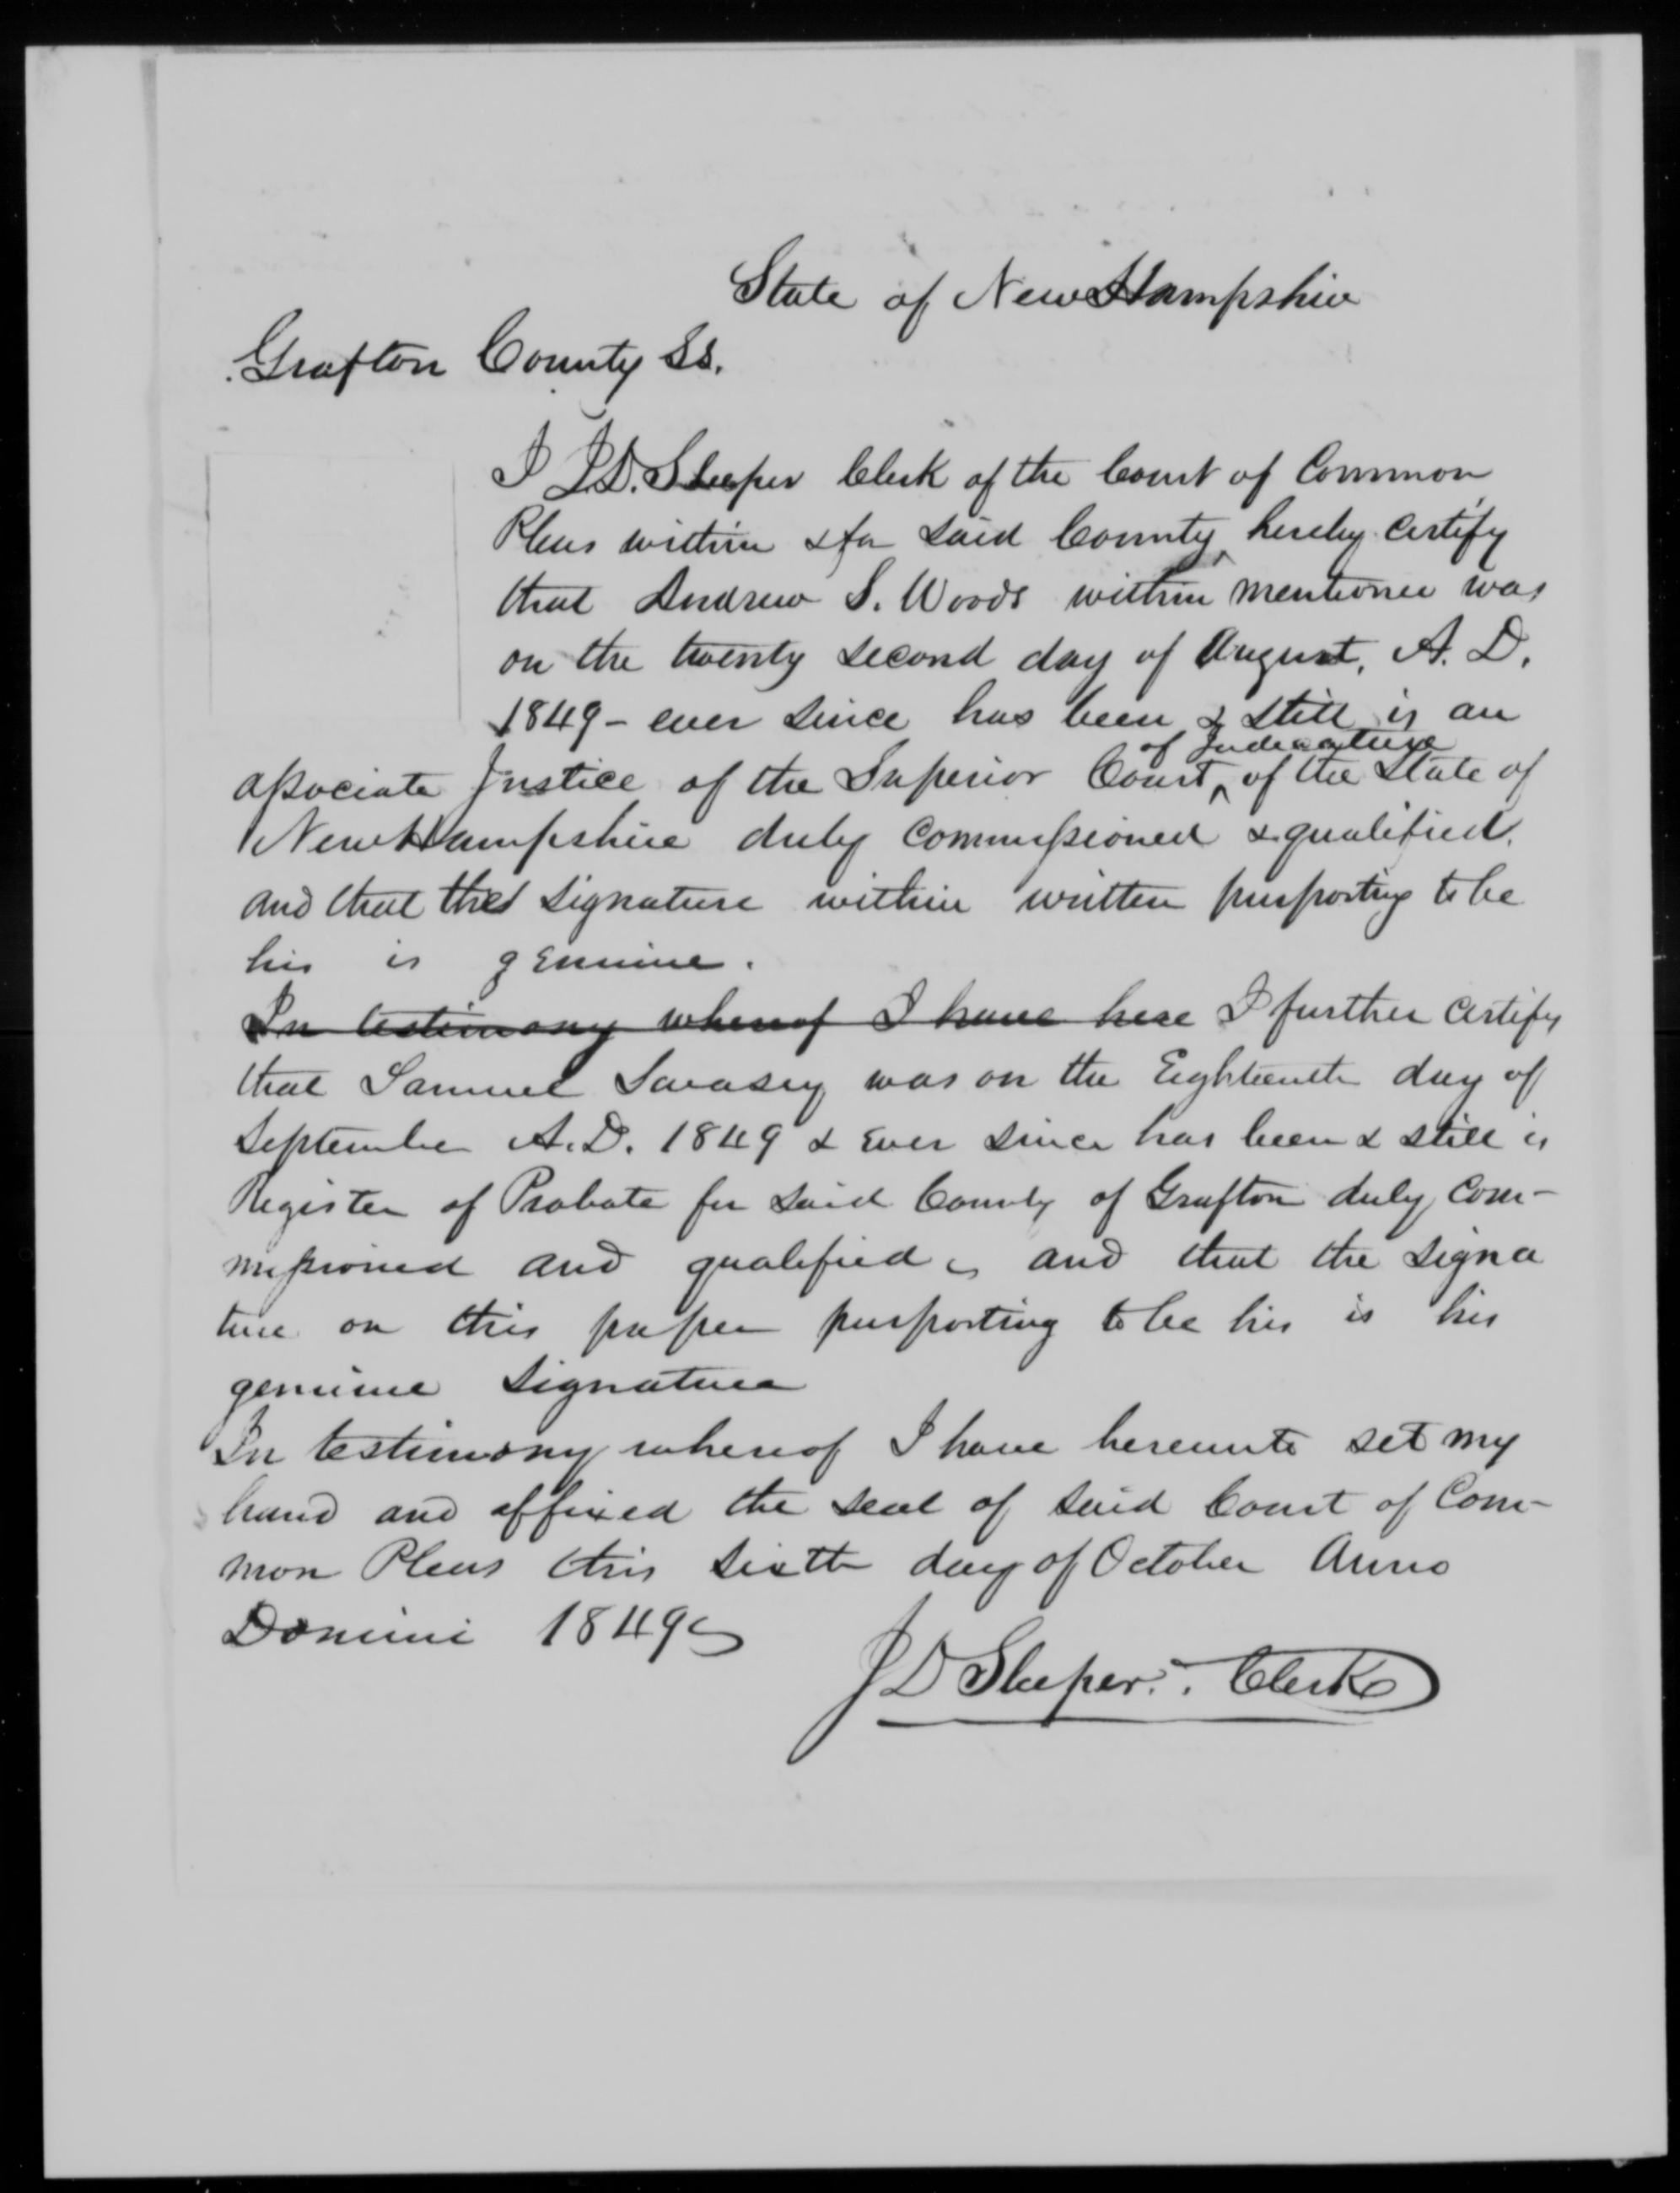 State of New Hampshire
Grafton County Ss.
I J.D. Sleeper Clerk of the Court of Common
Pleas within & for said County hereby certify
that Andrew S. Woods within mentioned was
on the twenty second day of August, A. D.
1849 - ever since has been & still is an
of Judicature
associate Justice of the Superior Court ^ of the State of
New Hampshire duly commissioned & qualified.
and that the signature within written purporting to be
his is genuine.
In testimony whereof I have here I further certify
that Samuel was on the Eighteenth day of
September A.D. 1849 & ever since has been & still is
Register of Probate for said County of Grafton duly com-
missioned and qualified, and that the signa
ture on this paper purporting to be his is his
genuine signature
In testimony whereof I have hereunto set my
hand and affixed the seal of said Court of Com-
mon Pleas this sixth day of October Anno
Domini 1849
J D Sleeper. Clerk